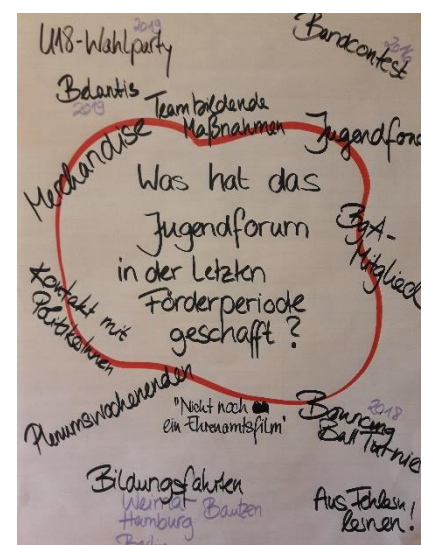 2019
U18-Wahlparty
Bandcontest
2016
Belantis
2019
Teambildende
Maßnahmen
Jugendfond
Merchandise
Was hat das
Jugendforum
in der letzten
Förderperiode
geschafft?
BgA-
Mitglied
Kontakt mit
PolitikerInnen
Plenumswochenenden
"Nicht noch
ein Ehrenamtsfilm"
2018
Ball Turnier
Bildungsfahrten
Weimar
Hamburg
Bautzen
Berlin
Aus Fehlern
lernen!